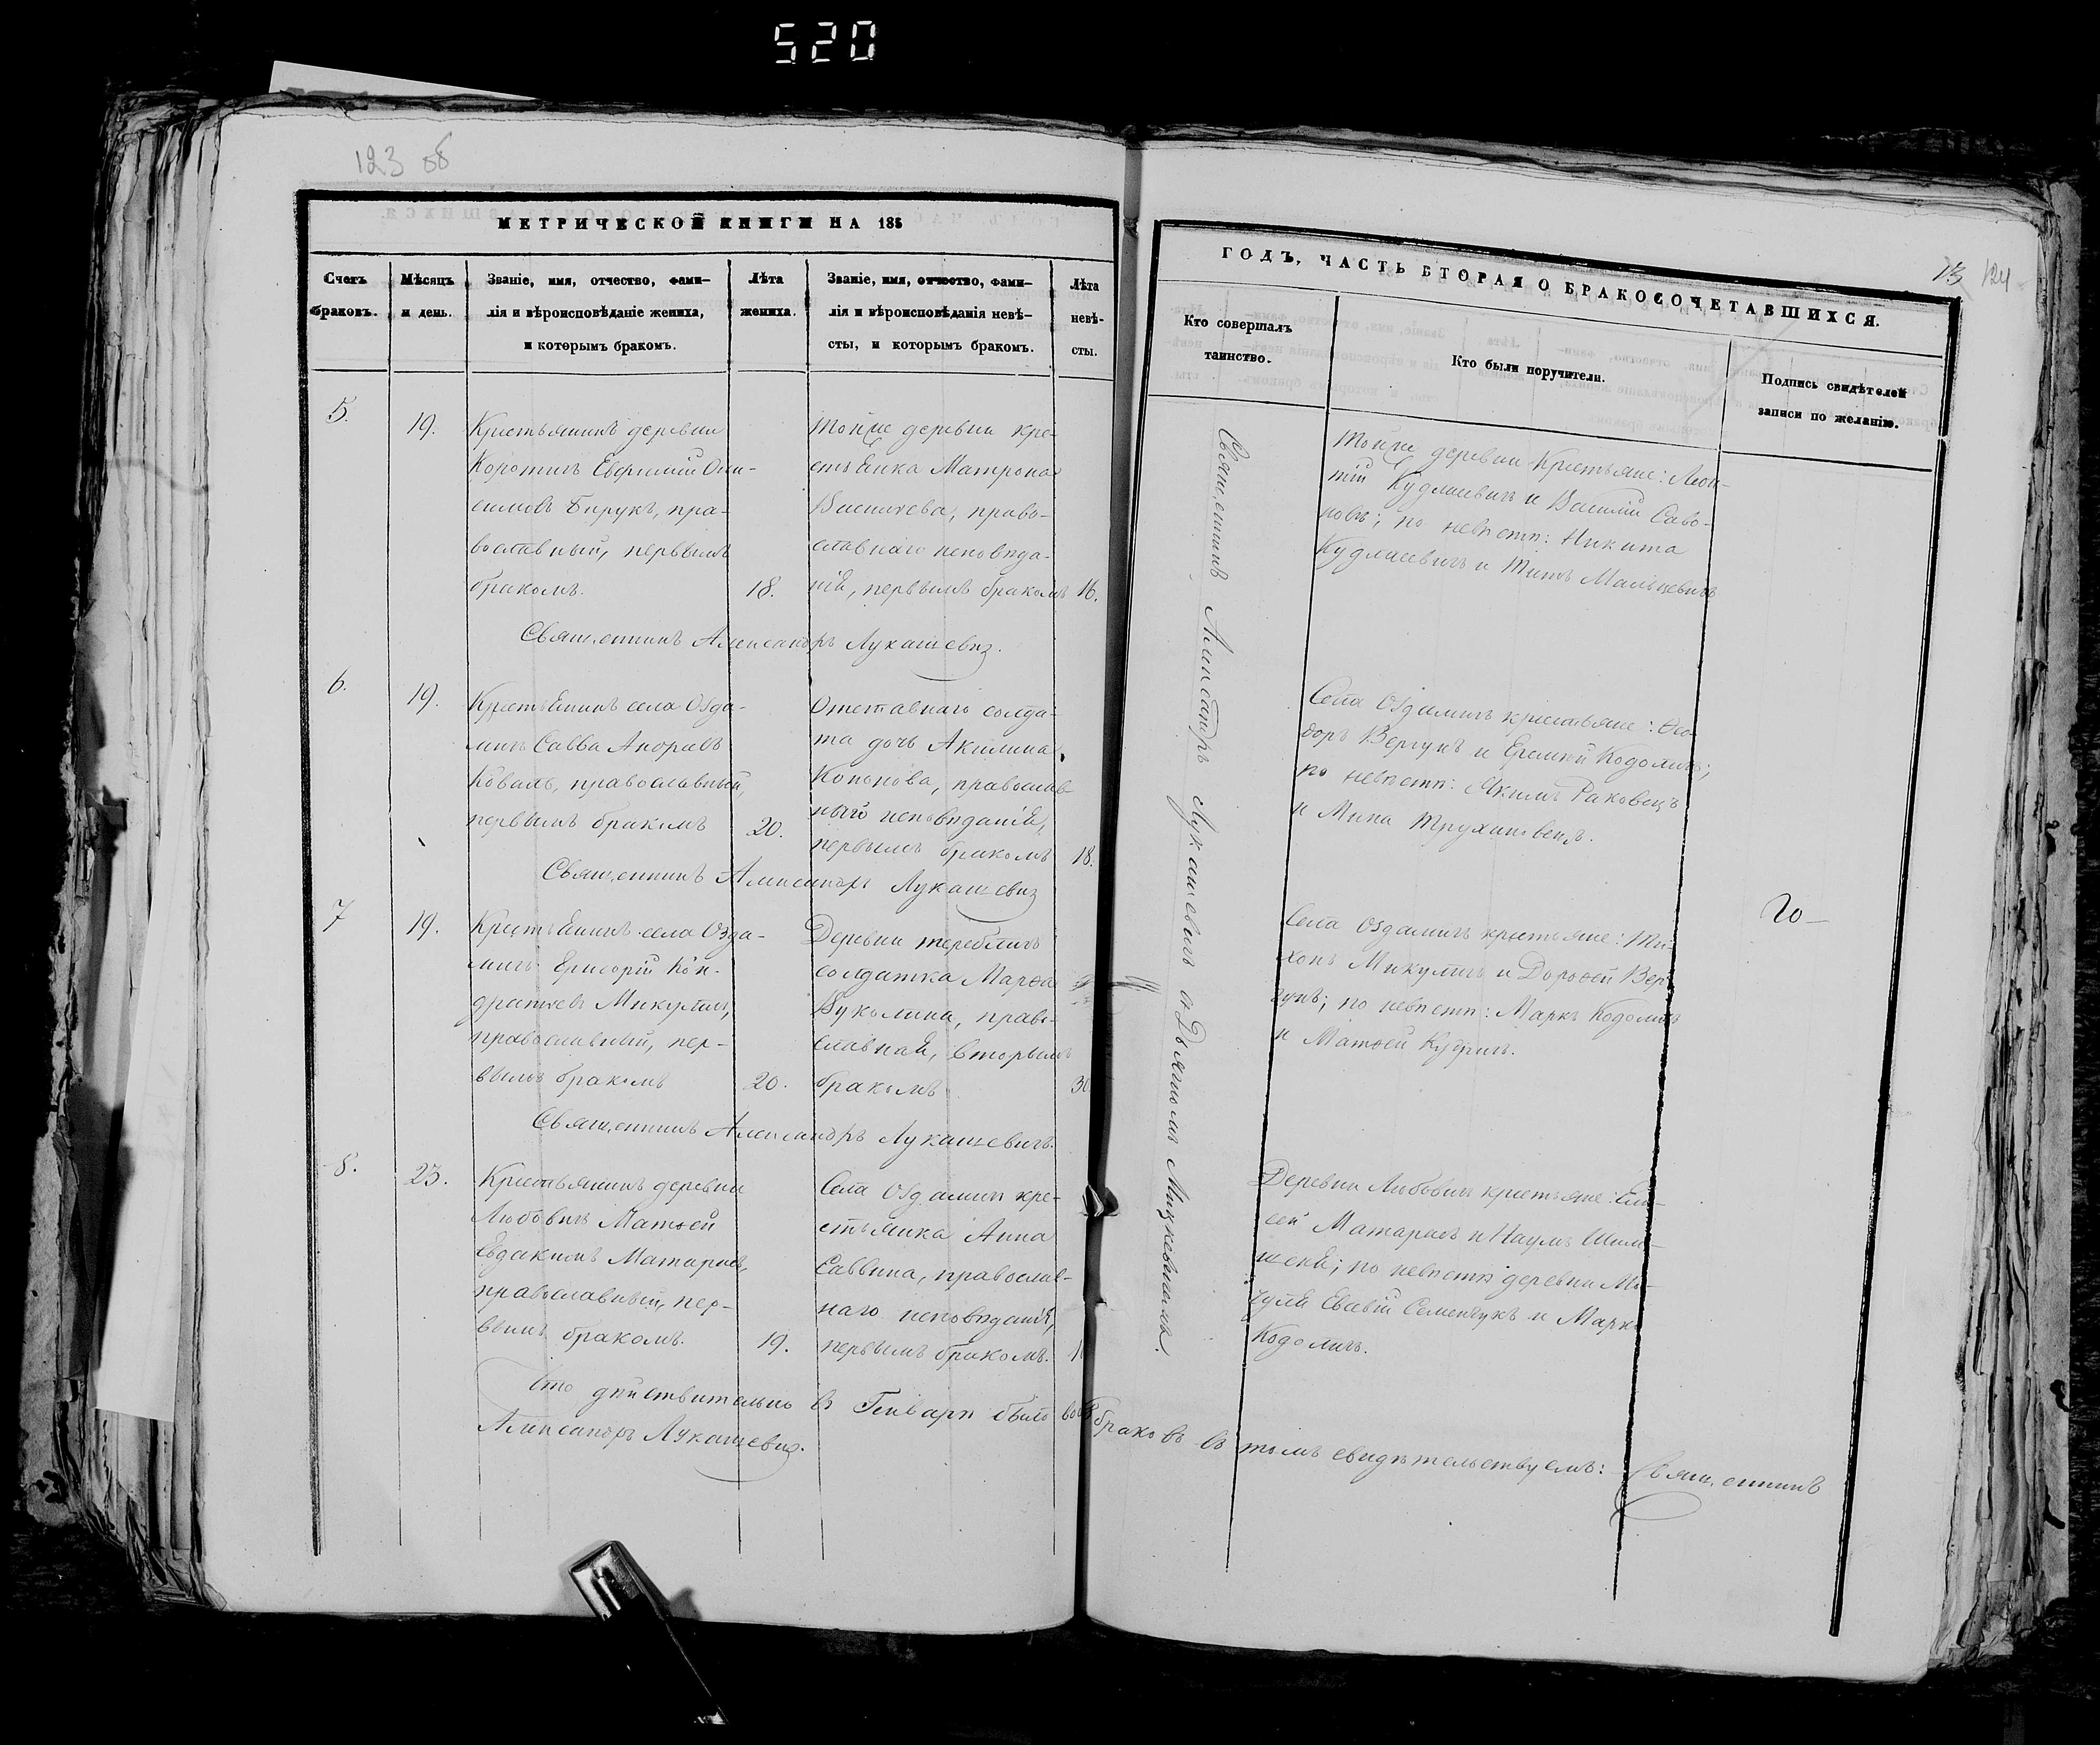 520
123 об
МЕТРИЧЕСКОЙ КНИГИ НА 185
Счетъ
браковъ.
Мѣсяцъ
и день.
Званіе, имя, отчество, фами-
лія и вѣроисповѣданіе жениха,
и которымъ бракомъ.
Лѣта
жениха.
Званіе, имя, отчество, фами-
лія и вѣроисповѣданія невѣ-
сты, и которымъ бракомъ.
Лѣта
невѣ-
сты.
5.
19.
Крестьянинъ деревни
Коротичъ Евфимій Они-
симовъ Бирукъ, пра-
вославный, первымъ
бракомъ.
18.
Тойже деревни кре-
стьянка Матрона
православнаго исповѣда-
нія, первымъ бракомъ
16.
Священникъ Александръ Лукашевич.
6.
19.
Крестьянинъ села Озда-
мичъ Савва
Коваль, православный,
первымъ бракомъ
20.
Отставнаго солда-
та дочь Акилина
Кононова, православ-
наго исповѣданія,
первымъ бракомъ
18.
Священникъ Александръ Лукашевич
7
19.
Крестьянинъ села Озда-
мичъ Григорій Кон-
дратьевъ Микулич,
православный, пер-
вымъ бракомъ
20.
Деревни Тереблич
солдатка Марѳа
Вуколина, право-
славная, вторымъ
бракомъ
30
Священникъ Александръ Лукашевичъ.
8.
23.
Крестьянинъ деревни
Любовичъ Матѳей
Евдакимъ
православный, пер-
вымъ бракомъ.
19.
Села Оздамичъ кре-
стьянка Анна
Саввина, православ-
наго исповѣданія,
первымъ бракомъ.
Что дѣйствительно въ Генварѣ было браковъ въ томъ свидѣтельствуемъ: Священникъ
Александръ Лукашевич.
13 124
ГОДЪ, ЧАСТЬ ВТОРАЯ О БРАКОСОЧЕТАВШИХСЯ.
Кто совершалъ
таинство.
Кто были поручители.
Подпись свидѣтелей
записи по желанію.
Священникъ Александръ Лукашевичъ съ Дьячкомъ Мицкевичемъ.
Тойже деревни Крестьяне: Леон-
тій Кудласевичъ и Василій Саво-
по невѣстѣ: Никита
Кудласевичъ и Титъ Мальцевичъ
Села Оздамичъ крестьяне: Ѳео-
доръ Вергунъ и Еремѣй Кодоличъ;
по невѣстѣ: Якимъ Раковецъ
и Мина
Села Оздамичъ крестьяне: Ти-
хонъ Микуличъ и Дороѳей Вер-
гунъ; по невѣстѣ: Маркъ Кодоличъ
и Матѳей Кудричъ.
Деревни Любовичъ крестьяне: Ели-
сей и Наумъ
по невѣстѣ деревни
Евсевій Семенчукъ и Маркъ
Кодоличъ.